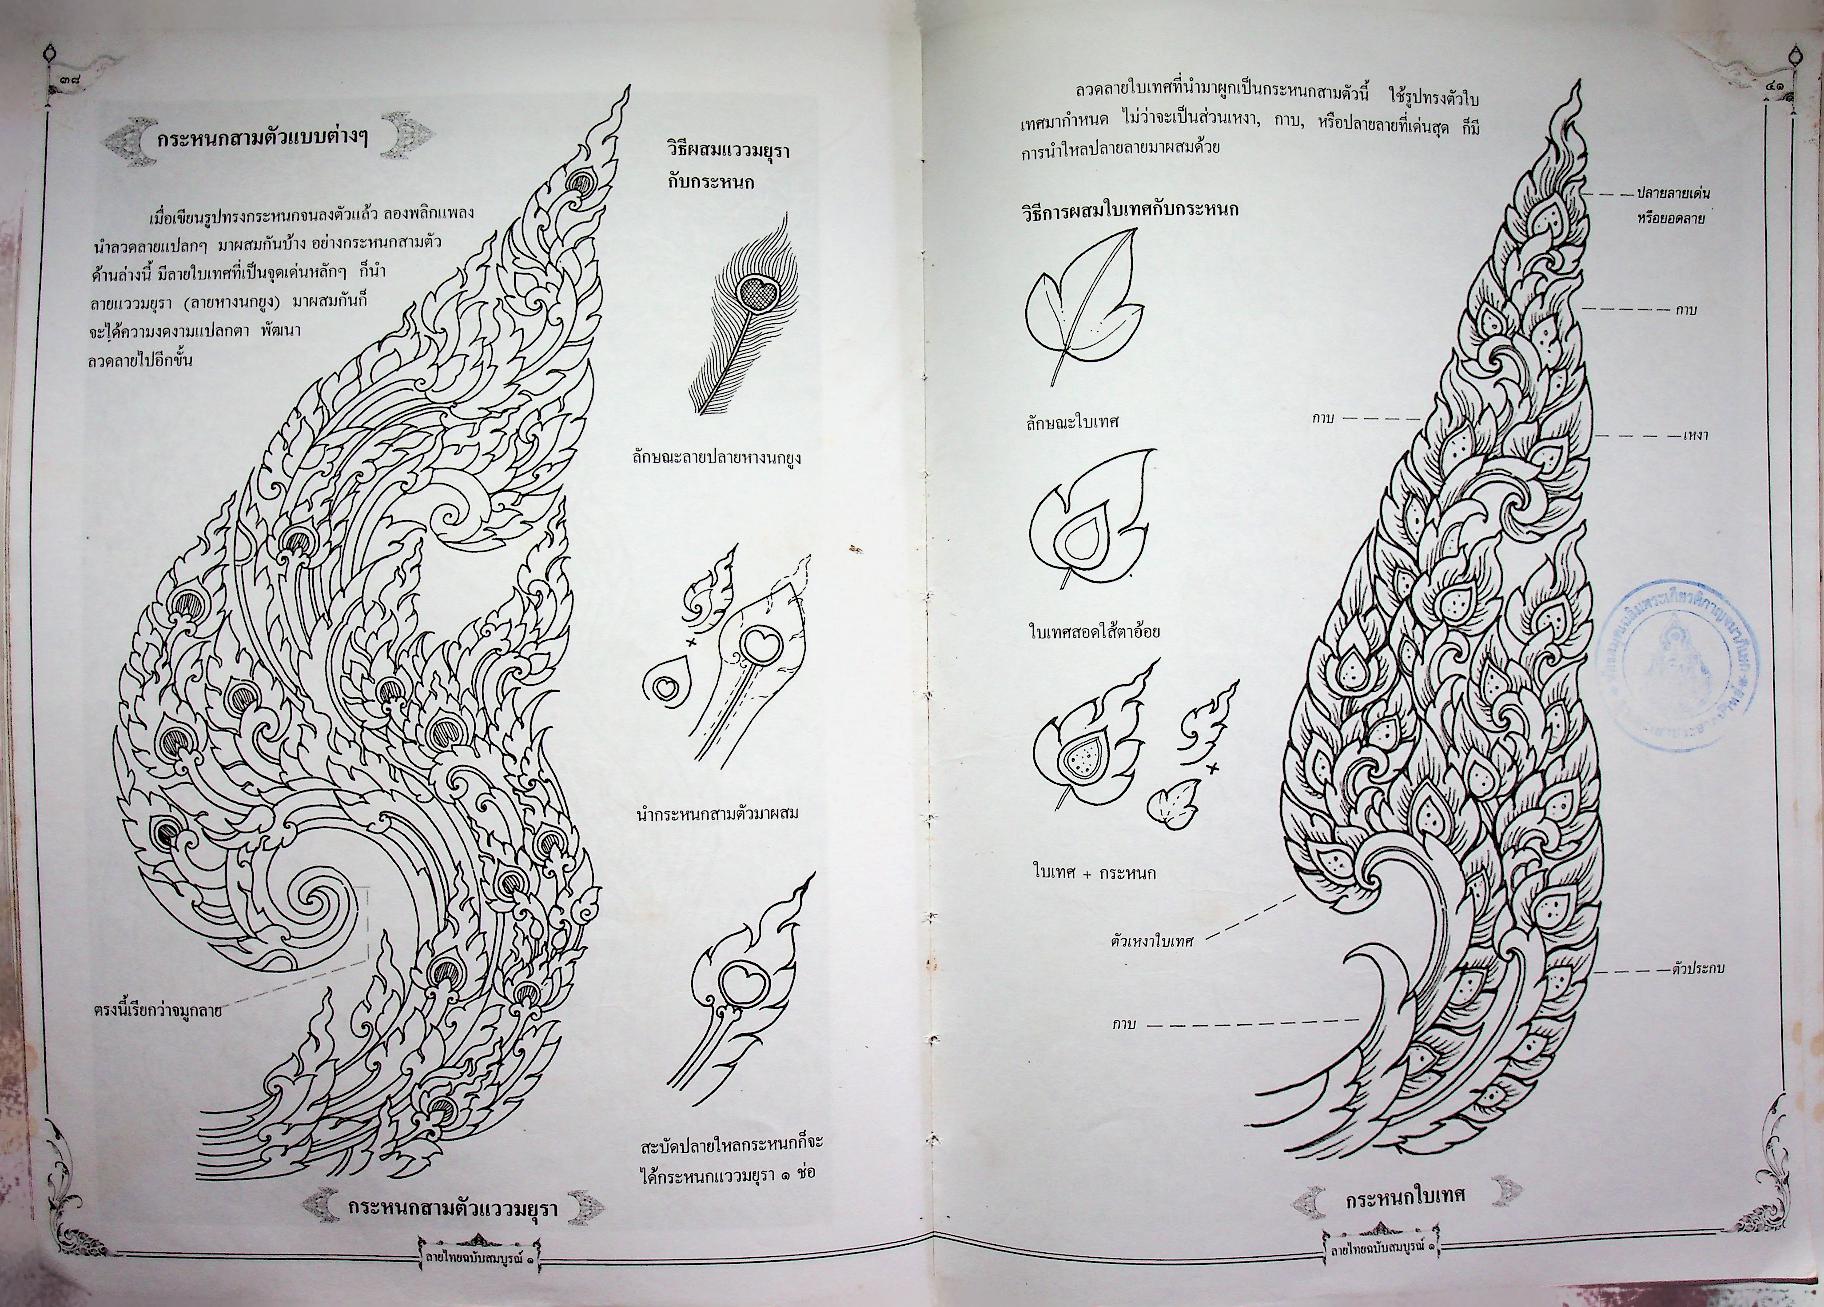 ๓๘
กระหนกสามตัวแบบต่างๆ
เมื่อเขียนรูปทรงกระหนกจนลงตัวแล้ว ลองพลิกแพลง
นำลวดลายแปลกๆ มาผสมกันบ้าง อย่างกระหนกสามตัว
ด้านล่างนี้ มีลายใบเทศที่เป็นจุดเด่นหลักๆ ก็นำ
ลายแววมยุรา (ลายหางนกยูง) มาผสมกันก็
จะได้ความงดงามแปลกตา พัฒนา
ลวดลายไปอีกขั้น
วิธีผสมแววมยุรา
กับกระหนก
ลักษณะลายปลายหางนกยูง
นำกระหนกสามตัวมาผสม
สะบัดปลายใหลกระหนกก็จะ
ได้กระหนกแววมยุรา ๑ ช่อ
ตรงนี้เรียกว่าจมูกลาย
กระหนกสามตัวแววมยุรา
ลายไทยฉบับสมบูรณ์ ๑
๔๑
ลวดลายใบเทศที่นำมาผูกเป็นกระหนกสามตัวนี้ ใช้รูปทรงตัวใบ
เทศมากำหนด ไม่ว่าจะเป็นส่วนเหงา, กาบ, หรือปลายลายที่เด่นสุด ก็มี
การนำใหลปลายลายมาผสมด้วย
วิธีการผสมใบเทศกับกระหนก
ลักษณะใบเทศ
ใบเทศสอดใส้ตาอ้อย
ใบเทศ + กระหนก
ปลายลายเด่น
หรือยอดลาย
กาบ
กาบ
เหงา
ตัวเหงาใบเทศ
ตัวประกบ
กาบ
กระหนกใบเทศ
ลายไทยฉบับสมบูรณ์ ๑